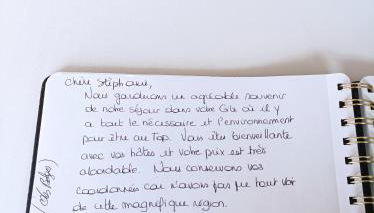 Chère Stéphanie,
Nous garderons un agréable souvenir
de notre séjour dans votre Gîte où il y
a tout le nécessaire et l'environnement
pour être au Top. Vous êtes bienveillante
avec vos hôtes et votre prix est très
abordable. Nous conservons vos
coordonnées car n'avons pas pu tout voir
de cette magnifique région.